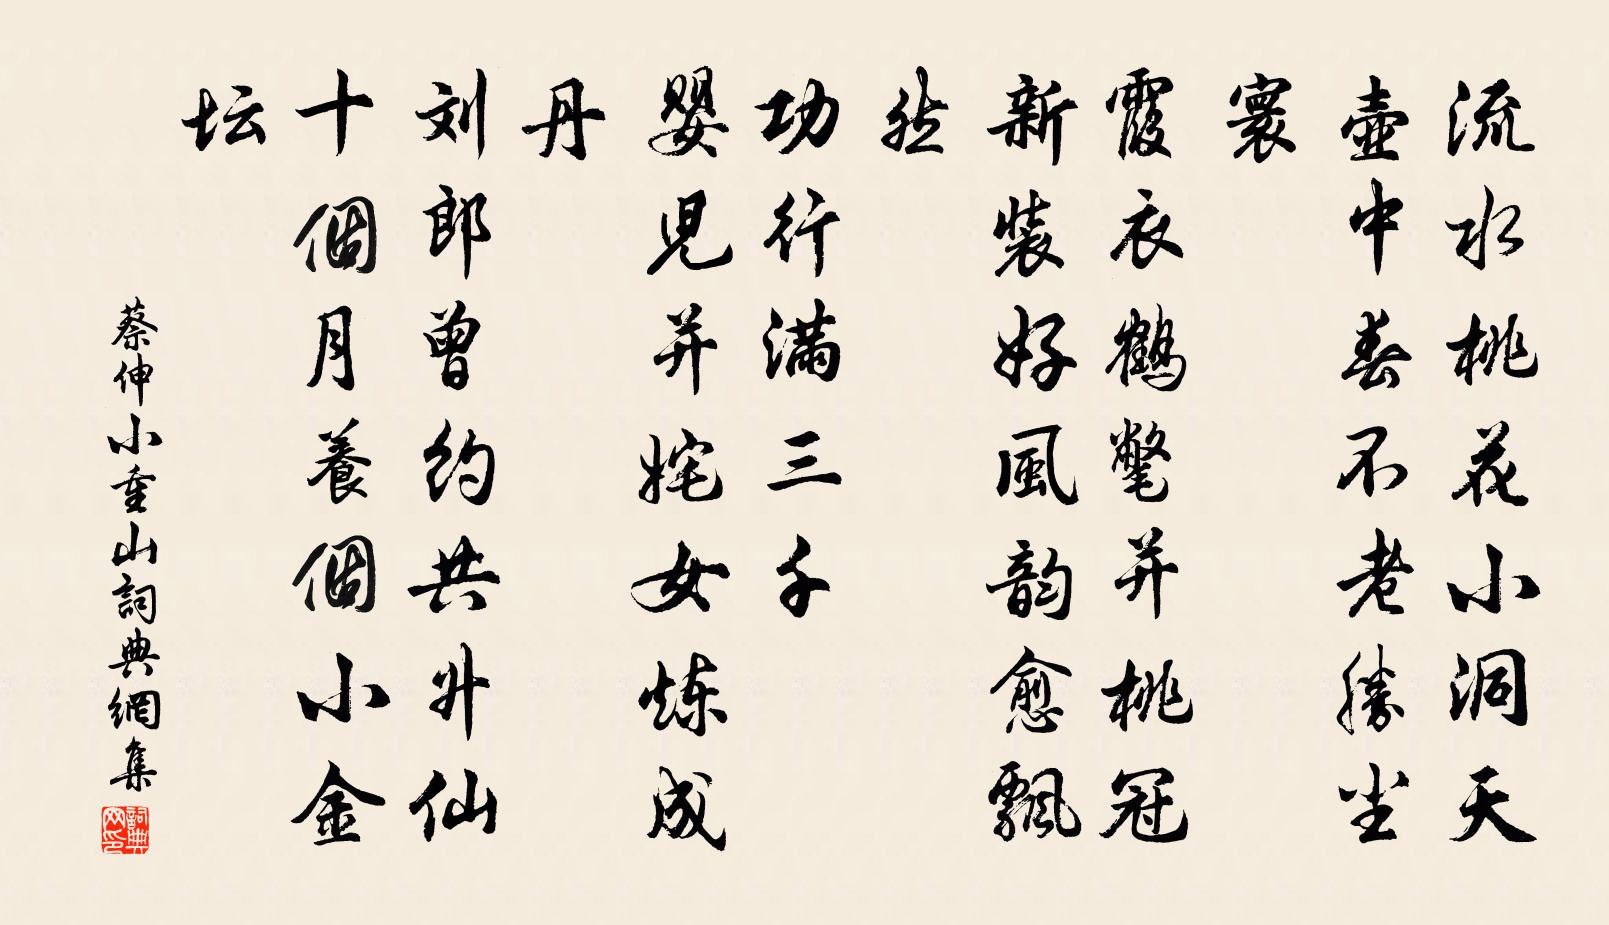 流水桃花小洞天
壶中春不老勝尘
寰
霞衣鶴氅并桃冠
新裝好風韵愈飄
然
功行滿三千
嬰兒并姹女炼成
丹
刘郎曾约共升仙
十個月養個小金
坛
蔡伸小重山詞典網集
詞典网印